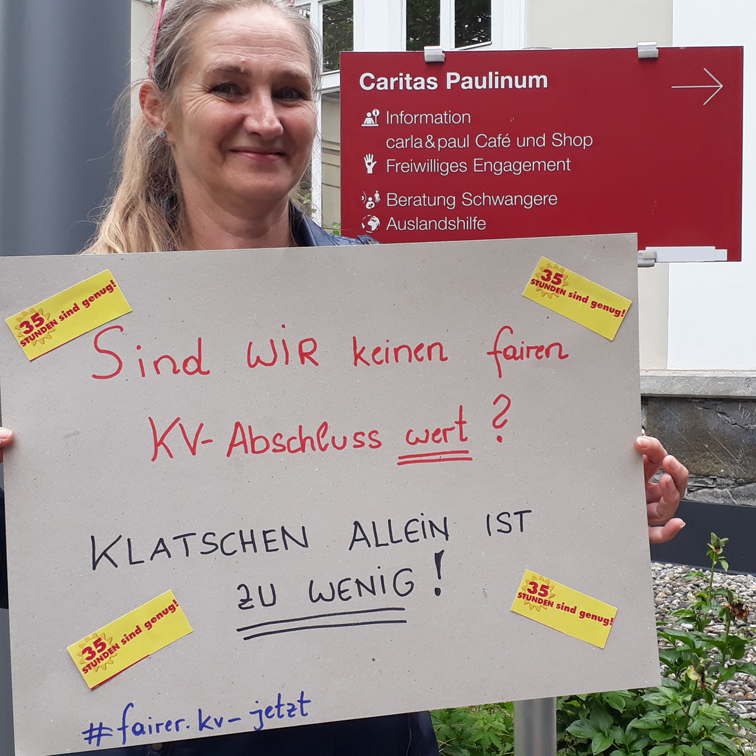 Caritas Paulinum
Information
carla&paul Café und Shop
Freiwilliges Engagement
Beratung Schwangere
Auslandshilfe
35
STUNDEN sind genug!
35
STUNDEN sind genug!
Sind WiR keinen fairen
KV-Abschluss wert?
KLATSCHEN ALLEiN IST
ZU WENiG!
35
STUNDEN sind genug!
35
STUNDEN sind genug!
#fairer.kv-jetzt